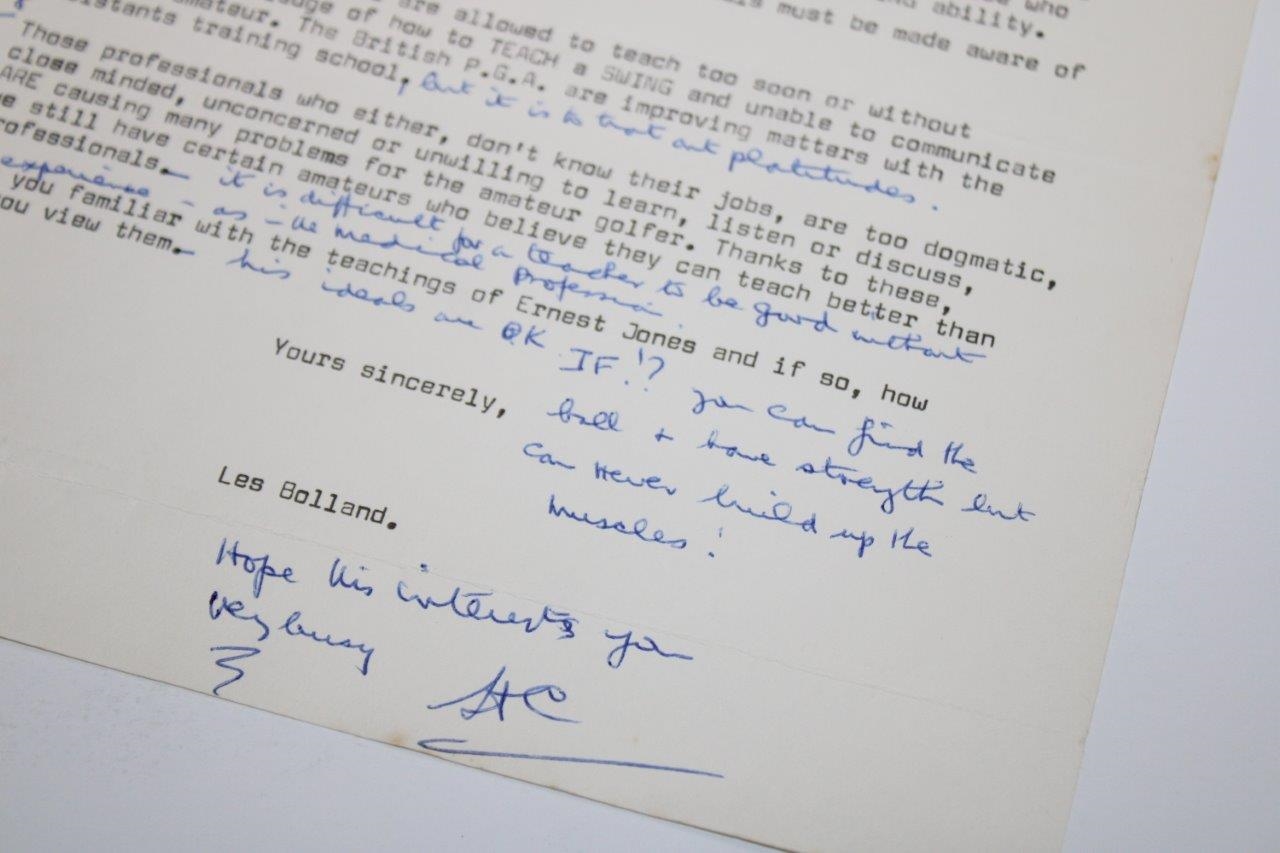 who
is must be made aware of
ability.
are allowed to teach too soon or without
of how to TEACH a SWING and unable to communicate
amateur. The British P.G.A. are improving matters with the
training school, but it is to trot out platitudes.
Those professionals who either, don't know their jobs, are too dogmatic,
close minded, unconcerned or unwilling to learn, listen or discuss,
ARE causing many problems for the amateur golfer. Thanks to these,
still have certain amateurs who believe they can teach better than
it is difficult for a teacher to be good without
experience - as in the medical Profession.
you familiar with the teachings of Ernest Jones and if so, how
you view them. his ideals are OK IF!? you can find the
ball + have strength but
can never build up the
muscles!
Yours sincerely,
Les Bolland.
Hope this interests you
very busy
HC